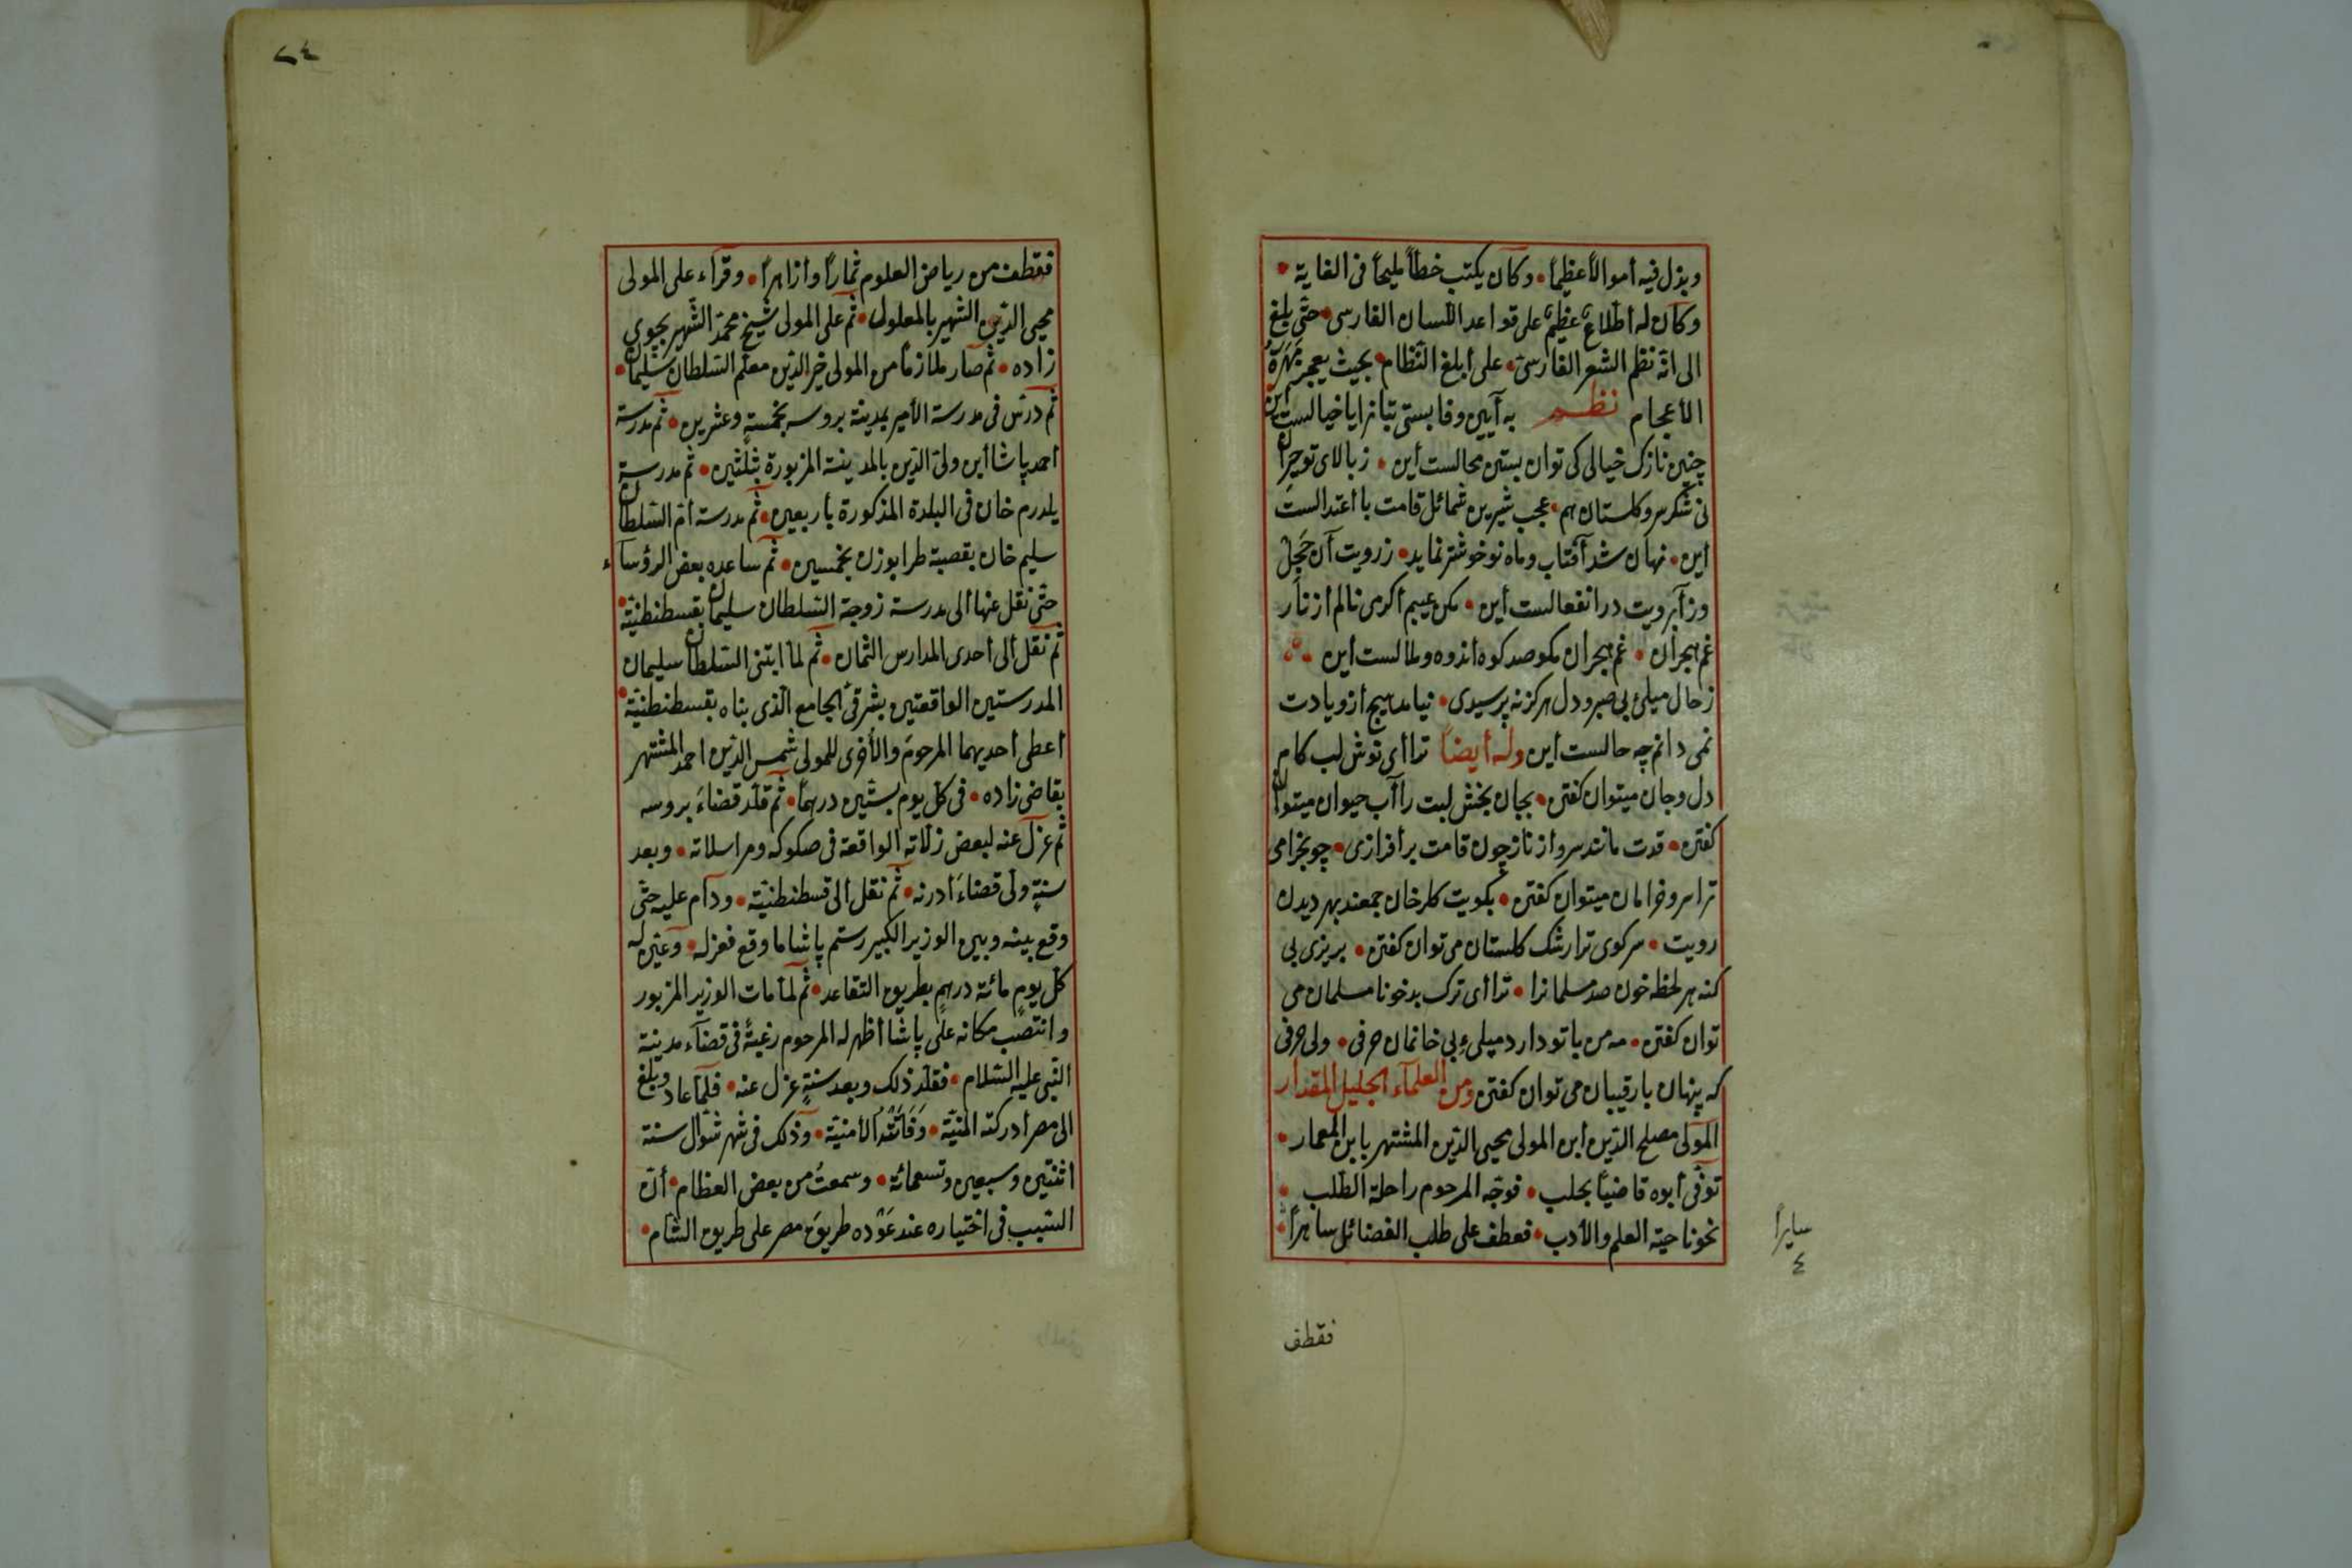 وبذل فيه أموالاً عظيماً • وكان يكتب خطاً مليحاً فى الغاية •
وكان له اطّلاعٌ عظيمٌ على قواعد اللّسان الفارسى • حتّى بلغ
الى انّه نظم الشعر الفارسىّ • على ابلغ النّظام • بحيث يعجز مَهَرَةُ
الأعجام نظم به آيين وفا بستى بتانرا يا خيالست اين
چنين نازك خيالى كى توان بستن محالست أين • زبالاى تو حيران
نى شكر سرو كلستان هم • عجب شيرين شمائل قامت با اعتدالست
أين • نهان شد آفتاب وماه نو خوشتر نمايد • زرويت آن خجل
وز آبرويت در انفعالست أين • مكن عيبم اكر مى نالم از بار
غم هجران • غم هجران مكو صد كوه اندوه وملالست أين •
زحال ميلئ بى صبر ودل هركز نه پرسيدى • نيامد هيچ از و يادت
نمى دانم چه حالست أين وله أيضاً ترا أى نوش لب كام
دل وجان ميتوان كفتن • بجان بخشى لبت را آب حيوان ميتوان
كفتن • قدت مانند سرو از ناز چون قامت بر أفرازى • چو بخرامى
ترا سرو خرامان ميتوان كفتن • بكويت كلرخان جمعند بهر ديدن
رويت • سر كوى ترا رشك كلستان مى توان كفتن • بريزى بى
كنه هر لحظه خون صد مسلمانرا • ترا أى ترك بدخو نا مسلمان مى
توان كفتن • مه من با تو دارد ميلىء بى خانمان حرفى • ولى حرفى
كه پنهان با رقيبان مى توان كفتن ومن العلمآء الجليل المقدار
المولى مصلح الدّين ابن المولى محيى الدّين المشتهر بابن المعمار •
توفّى أبوه قاضياً بحلب • فوجّه المرحوم راحلة الطّلب •
نحو ناحية العلم والأدب • فعطف على طلب الفضائل ساهراً •
سايراً
٤
فقطف
٢٤
فقطف من رياض العلوم ثماراً وأزاهراً • وقرآء على المولى
محيى الدّين الشهير بالمعلول • ثم على المولى شيخ محمّد الشّهير بچوى
زاده • ثم صار ملازماً من المولى خير الدّين معلّم السّلطان سليمان •
ثم درّس فى مدرسة الأمير بمدينة بروسه بخمسةٍ وعشرين • ثم مدرسة
احمد پاشا أبن ولىّ الدّين بالمدينة المزبورة بثلثين • ثم مدرسة
يلدرم خان فى البلدة المذكورة بأربعين • ثم مدرسة امّ السّلطان
سليم خان بقصبة طرابوزن بخمسين • ثم ساعده بعض الرؤسآء
حتّى نقل عنها الى مدرسة زوجة السّلطان سليمان بقسطنطنيّة •
ثم نقل ألى أحدى المدارس الثمان • ثم لمّا ابتنى السّلطان سليمان
المدرستين الواقعتين بشرقىّ الجامع الّذى بناه بقسطنطنيّة •
أعطى أحديهما المرحومَ والأُخرى للمولى شمس الدّين احمد المشتهر
بقاضى زاده • فى كلّ يوم بستّين درهماً • ثم قلّد قضاءَ بروسه
ثم عزل عنه لبعض زلّاته الواقعة فى صكوكه ومراسلاته • وبعد
سنةٍ ولّى قضاءَ أدرنه • ثم نقل ألى قسطنطنيّة • ودام عليه حتّى
وقع بينه وبين الوزير الكبير رستم پاشا ما وقع فعزله • وعيّن له
كلّ يومٍ مائة درهمٍ بطريق التقاعد • ثم لمّا مات الوزير المزبور
وانتصب مكانه على پاشا أظهر له المرحوم رغبةً فى قضآء مدينة
النّبى عليه السّلام • فقلّد ذلك وبعد سنةٍ عزل عنه • فلمّا عاد وبلغ
الى مصر أدركته المنيّة • وَفَاتَتْهُ الأمنيّة • وذلك فى شهر شوّال سنة
اثنتين وسبعين وتسعمائة • وسمعتُ من بعض العظام • أنّ
السّبب فى اختياره عند عَوْده طريقَ مصر على طريق الشام •